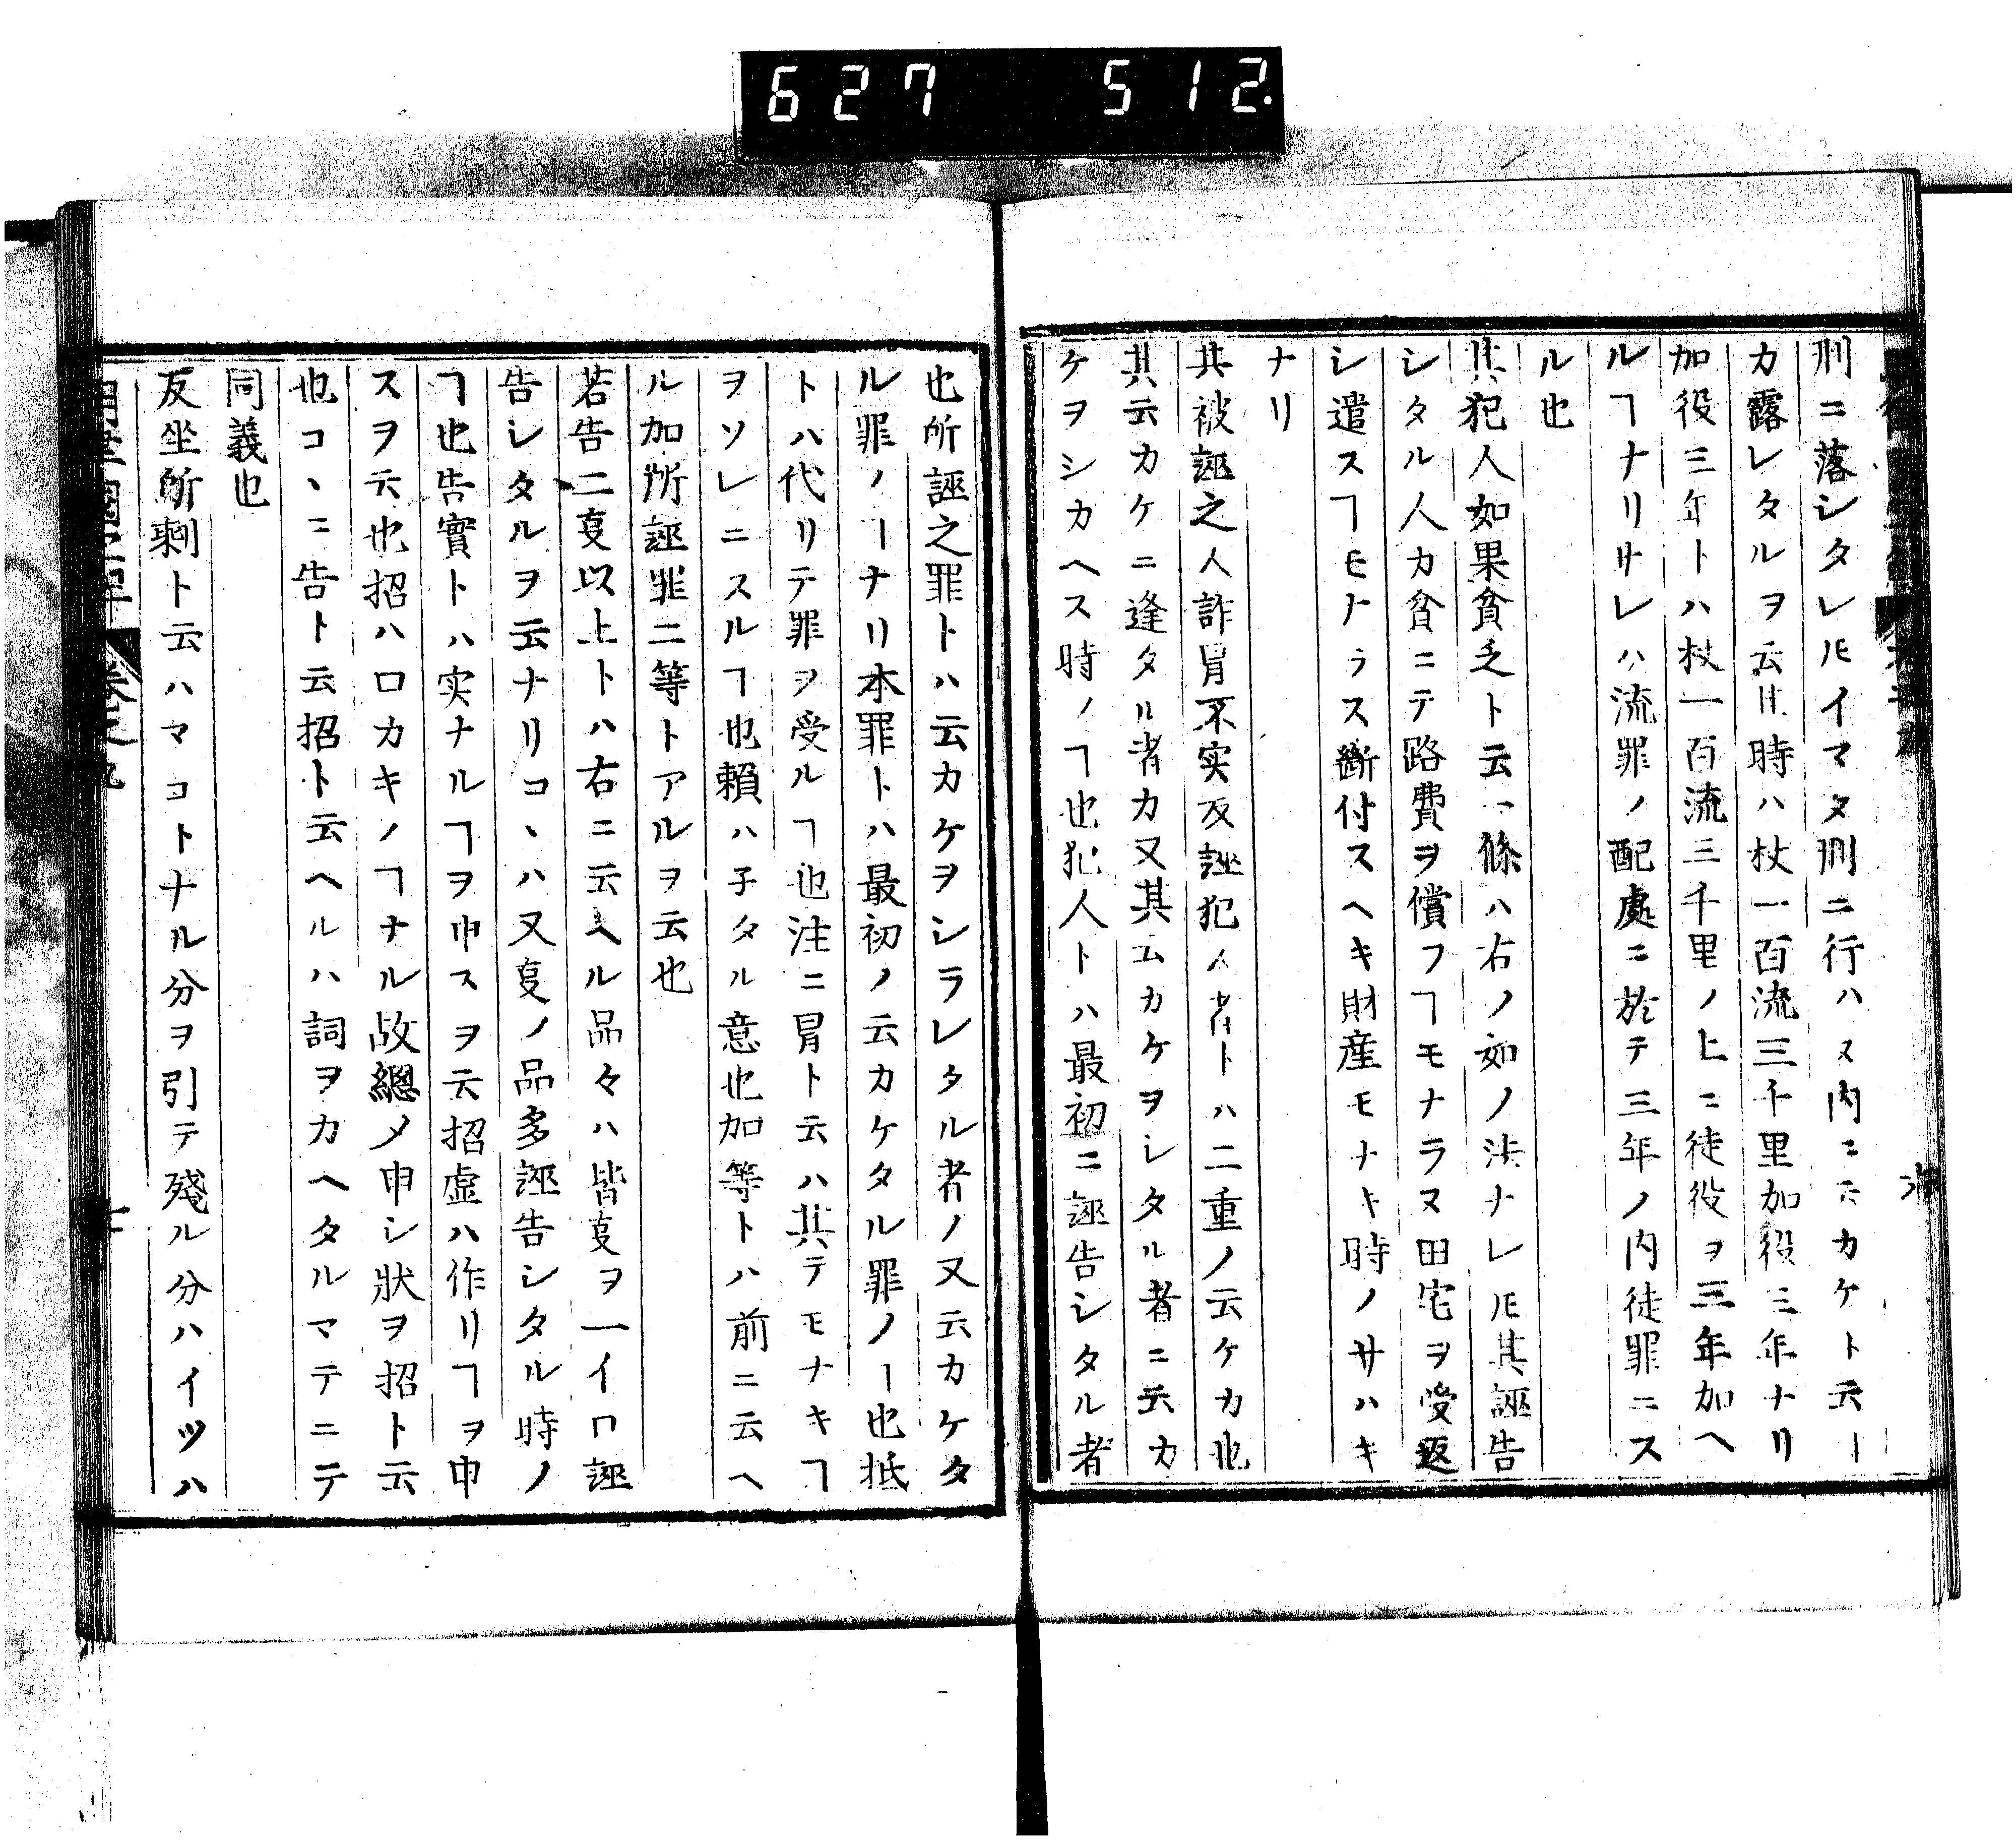 627 512
刑ニ落シタレㇳモイマタ刑ニ行ハヌ内ニ云カケト云ヿ
カ露レタルヲ云其時ハ杖一百流三千里加役三年ナリ
加役三年トハ杖一百流三千里ノ上ニ徒役ヲ三年加ヘ
ルヿナリサレハ流罪ノ配處ニ於テ三年ノ内徒罪ニス
ル也
其犯人如果貧乏ト云一條ハ右ノ如ノ法ナレㇳモ其誣告
シタル人カ貧ニテ路費ヲ償フヿモナラヌ田宅ヲ受返
シ遣スヿモナラス斷付スヘキ財産モナキ時ノサハキ
ナリ
其被誣之人詐冐不实反誣犯人者トハ二重ノ云ケカ也
其云カケニ逢タル者カ又其云カケヲシタル者ニ云カ
ケヲシカヘス時ノヿ也犯人トハ最初ニ誣告シタル者
也所誣之罪トハ云カケヲシラレタル者ノ又云カケタ
ル罪ノヿナリ本罪トハ最初ノ云カケタル罪ノヿ也抵
トハ代リテ罪ヲ受ルヿ也注ニ冐ト云ハ其テモナキヿ
ヲソレニスルヿ也頼ハ子タル意也加等トハ前ニ云ヘ
ル加所誣罪二等トアルヲ云也
若告二㕝以上トハ右ニ云ヘル品々ハ皆㕝ヲ一イロ誣
告シタルヲ云ナリコヽハ又㕝ノ品多誣告シタル時ノ
ヿ也告實トハ実ナルヿヲ申スヲ云招虚ハ作リヿヲ申
スヲ云也招ハ口カキノヿナル故總メ申シ狀ヲ招ト云
也コヽニ告ト云招ト云ヘルハ詞ヲカヘタルマテニテ
同義也
反坐所剰ト云ハマコトナル分ヲ引テ殘ル分ハイツハ